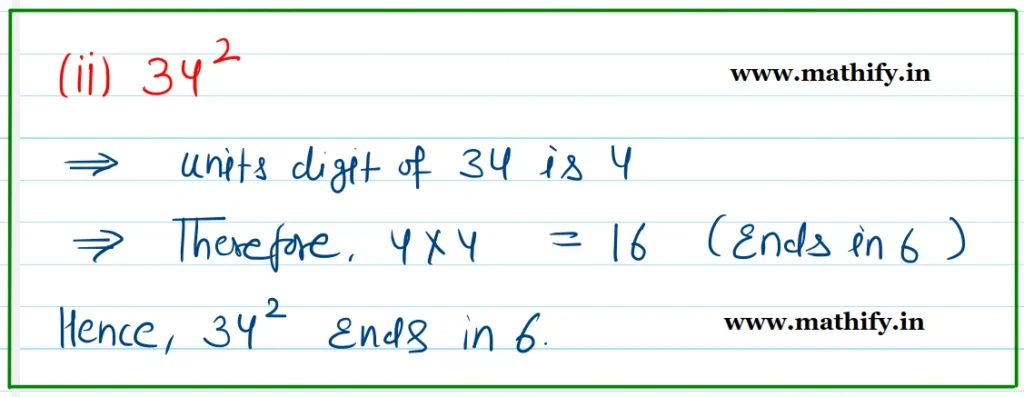 (ii) 34²
www.mathify.in
⇒ units digit of 34 is 4
⇒ Therefore, 4 × 4 = 16 (Ends in 6)
Hence, 34² Ends in 6.
www.mathify.in